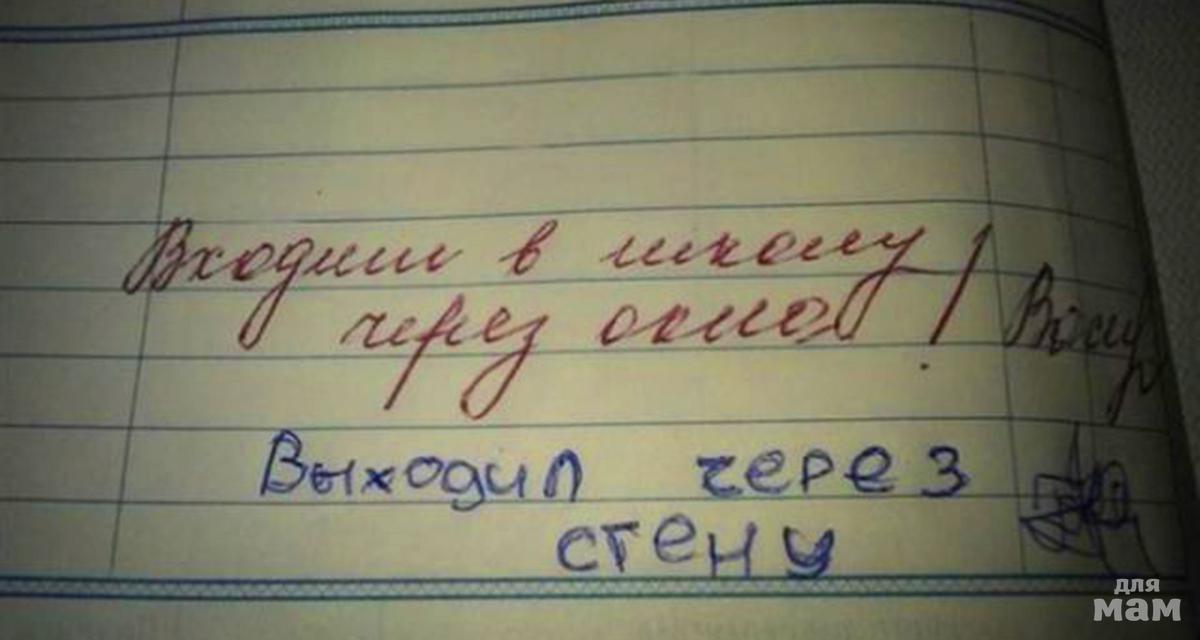 Входит в школу
через окно!
Выходил через
стену
для
мам